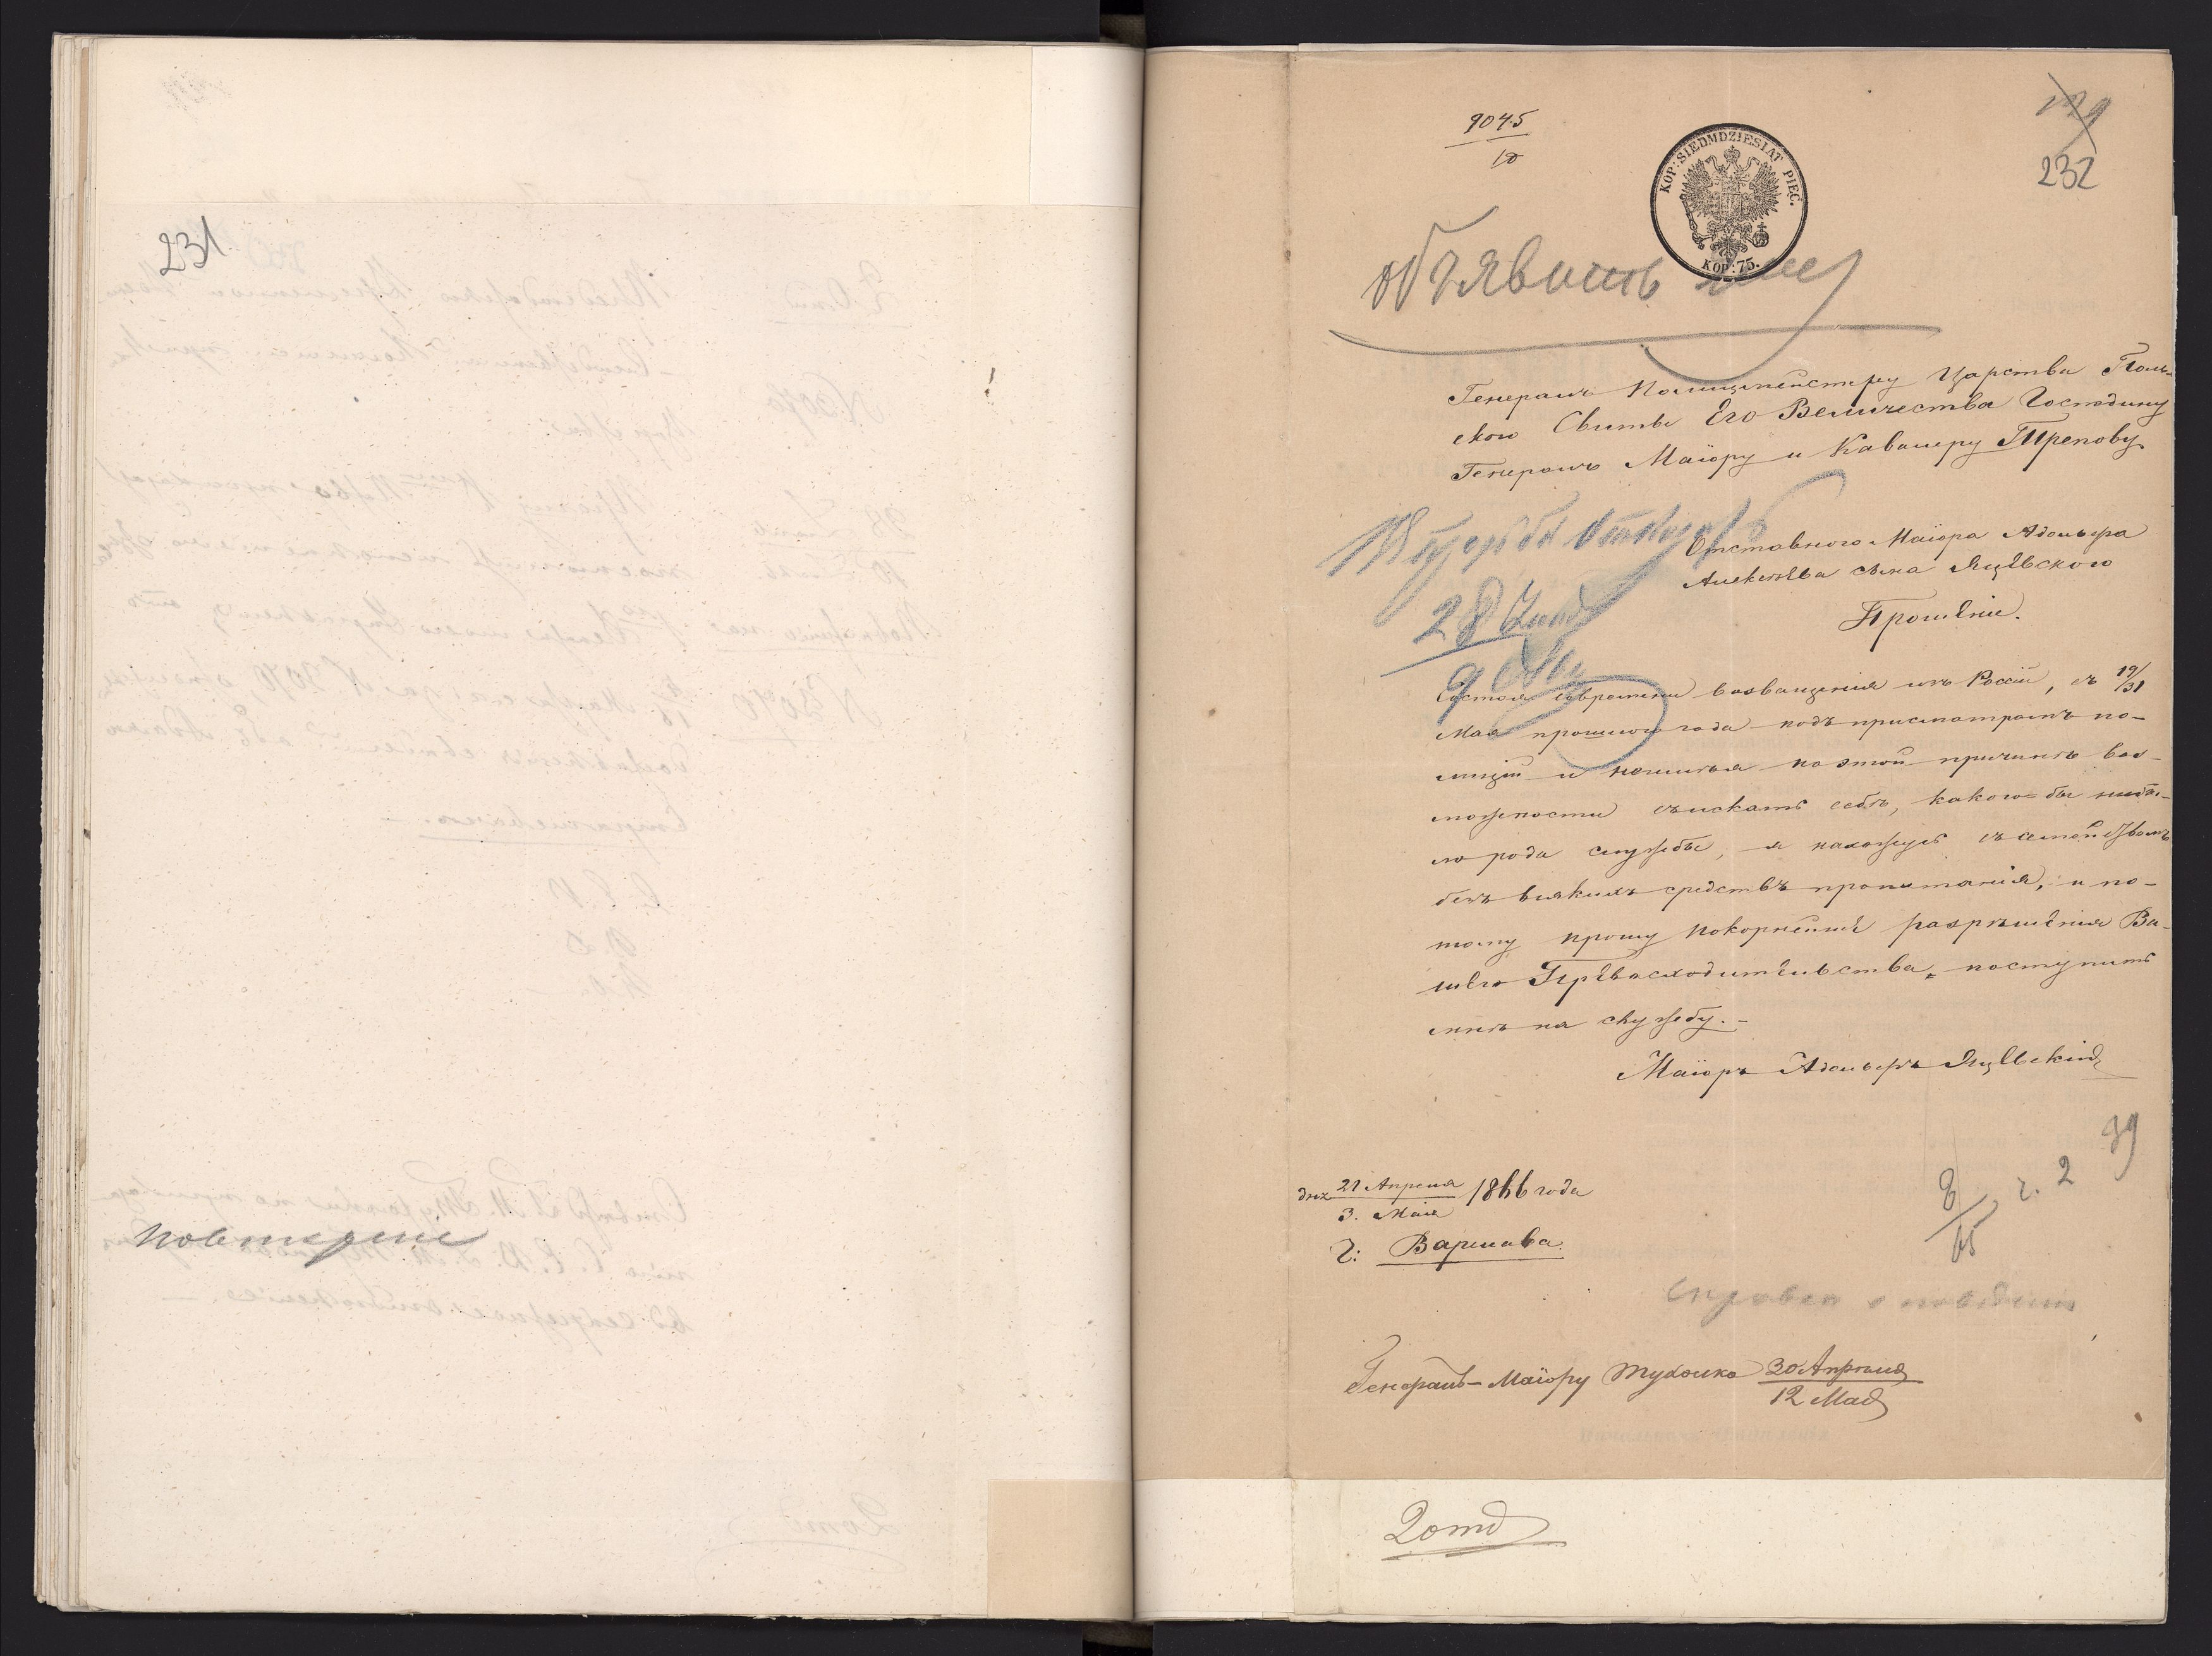 231
Повтореніе
9045
10
129
232
KOP: SIEDMDZIESIAT PIĘC.
KOP: 75.
объявить
Генералъ Полицмейстеру Царства Поль-
ского Свиты Его Величества Господину
Генералъ Маіору и Кавалеру Трепову.
Отставного Маіора Адольфа
Алексѣева сына Яцевского
Прошеніе.
28
9
Состоя со времени возвращенія изъ Россіи, съ 19/31
Мая прошлого года подъ присмотромъ по-
лиціи и неимѣя по этой причинѣ воз-
можности съискать себѣ, какого бы нибы-
ло рода службы, я нахожусь съ семействомъ
безъ всякихъ средствъ пропитанія, и по-
тому прошу покорнейше разрѣшенія Ва-
шего Превосходительства, поступить
мнѣ на службу. —
Маіоръ Адольфъ Яцевскій
39
8/65 ч. 2
дня 21 Апреля
3. Мая 1866 года
Г: Варшава.
Справка о
Генералъ-Маіору Тухолка 30 Апрѣля
12 Мая
2 отд